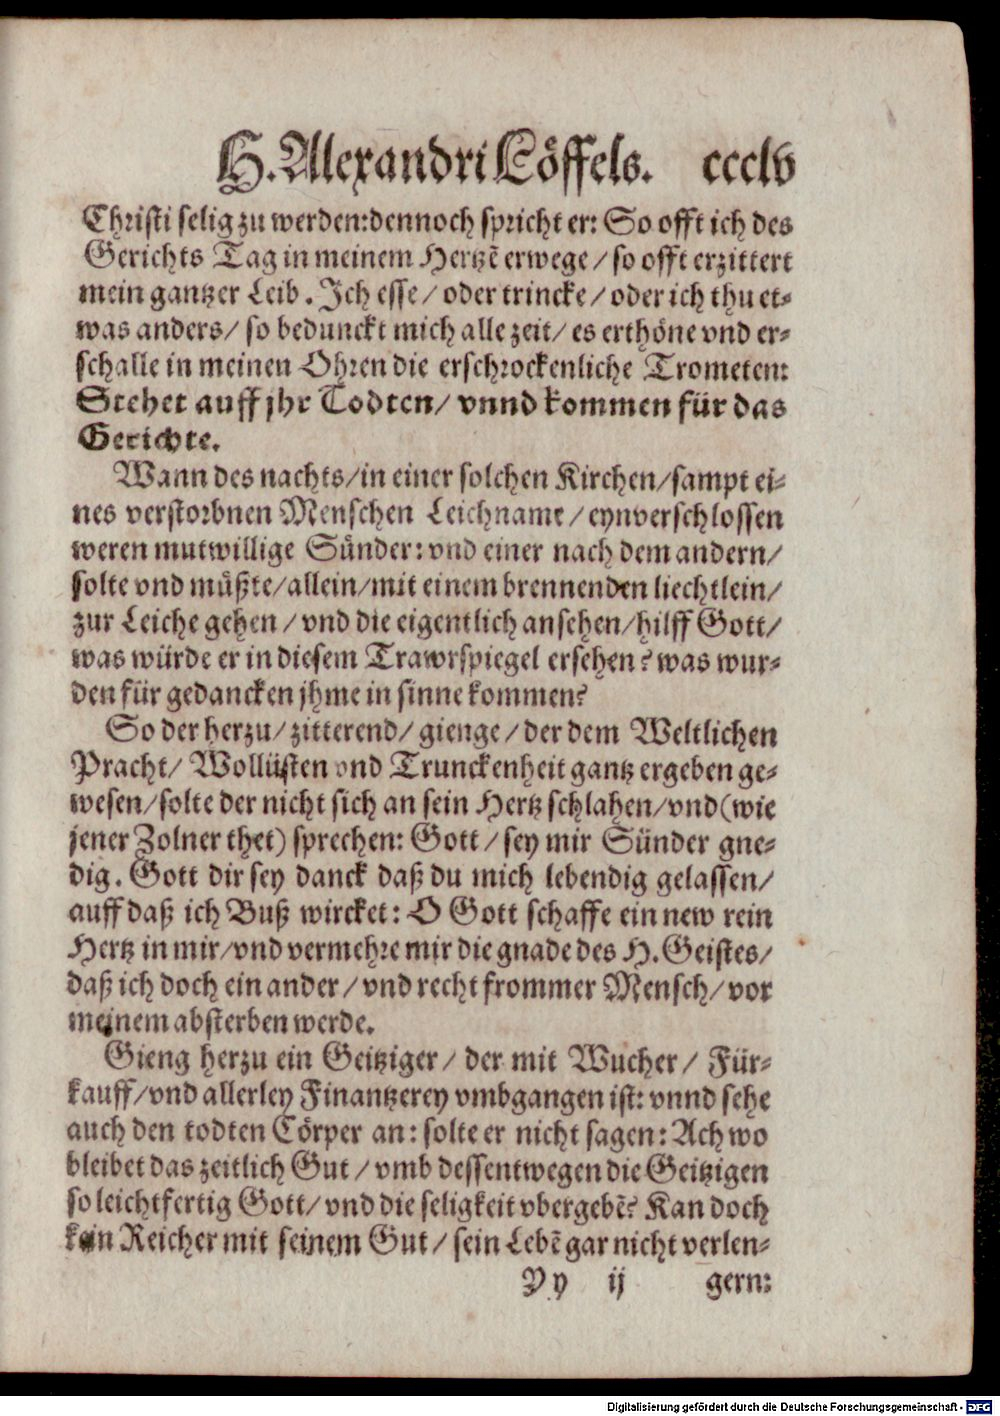 H. Alexandri Löffels. ccclv
Christi selig zu werden: dennoch spricht er: So offt ich des
Gerichts Tag in meinem Hertzẽ erwege / so offt erzittert
mein gantzer Leib. Ich esse / oder trincke / oder ich thu et-
was anders / so bedunckt mich alle zeit / es erthöne vnd er-
schalle in meinen Ohren die erschrockenliche Trometen:
Stehet auff jhr Todten / vnnd kommen für das
Gerichte.
Wann des nachts / in einer solchen Kirchen / sampt ei-
nes verstorbnen Menschen Leichname / eynverschlossen
weren mutwillige Sünder: vnd einer nach dem andern /
solte vnd müßte / allein / mit einem brennenden liechtlein /
zur Leiche gehen / vnd die eigentlich ansehen / hilff Gott /
was würde er in diesem Trawrspiegel ersehen? was wur-
den für gedancken jhme in sinne kommen?
So der herzu / zitterend / gienge / der dem Weltlichen
Pracht / Wollüsten vnd Trunckenheit gantz ergeben ge-
wesen / solte der nicht sich an sein Hertz schlahen / vnd (wie
jener Zolner thet) sprechen: Gott / sey mir Sünder gne-
dig. Gott dir sey danck daß du mich lebendig gelassen /
auff daß ich Buß wircket: O Gott schaffe ein new rein
Hertz in mir / vnd vermehre mir die gnade des H. Geistes /
daß ich doch ein ander / vnd recht frommer Mensch / vor
meinem absterben werde.
Gieng herzu ein Geitziger / der mit Wucher / Für-
kauff / vnd allerley Finantzerey vmbgangen ist: vnnd sehe
auch den todten Cörper an: solte er nicht sagen: Ach wo
bleibet das zeitlich Gut / vmb dessentwegen die Geitzigen
so leichtfertig Gott / vnd die seligkeit vbergebẽ? Kan doch
kein Reicher mit seinem Gut / sein Lebẽ gar nicht verlen-
Yy ij gern:
Digitalisierung gefördert durch die Deutsche Forschungsgemeinschaft - DFG